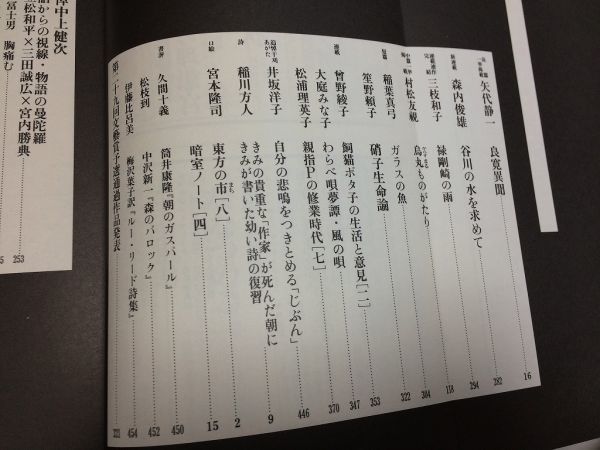 矢代静一 良寛異聞 16
282
森内俊雄 谷川の水を求めて 294
新連載 三枝和子 禄剛崎の雨 118
村松友視 烏丸ものがたり 304
稲葉真弓 ガラスの魚 322
短篇 笙野頼子 硝子生命論 353
曾野綾子 飼猫ポタ子の生活と意見[二] 347
連載 大庭みな子 わらべ唄夢譚・風の唄 370
松浦理英子 親指Pの修業時代[七] 446
井坂洋子 自分の悲鳴をつきとめる「じぶん」 9
きみの貴重な「作家」が死んだ朝に
詩 稲川方人 きみが書いた幼い詩の復習 2
口絵 宮本隆司 東方の市[八]
暗室ノート[四] 15
書評 久間十義 筒井康隆『朝のガスパール』 450
松枝到 中沢新一『森のバロック』 452
伊藤比呂美 梅沢葉子訳『ルー・リード詩集』 454
第二十九回文藝賞予選通過作品発表 221
悼中上健次
語からの視線・物語の曼陀羅
松和平×三田誠広×宮内勝典 253
冨士男 胸痛む 5